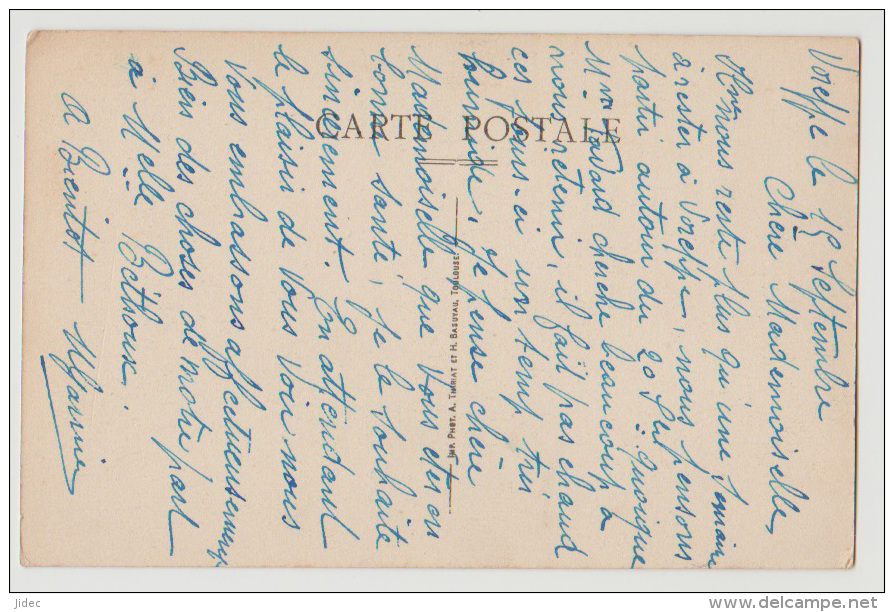 Voreppe le 15 Septembre
Chère Mademoiselle,
Il nous reste plus qu'une semaine
à rester à Voreppe, nous pensons
partir autour du 20 Sept. quoique
Mme Favard cherche beaucoup à
nous retenir, il fait pas chaud
ces jours-ci un temp très
humide, Je pense chère
Mademoiselle que vous etes en
bonne santé, je le souhaite
sincèrement. En attendant
le plaisir de vous voir nous
Vous embrassons affectueusement
Bien des choses de notre part
à Melle Béthoux.
A Bientot
CARTE POSTALE
IMP. PHOT. A. THIRIAT ET H. BASUYAU, TOULOUSE.
jidec
delcampe.net